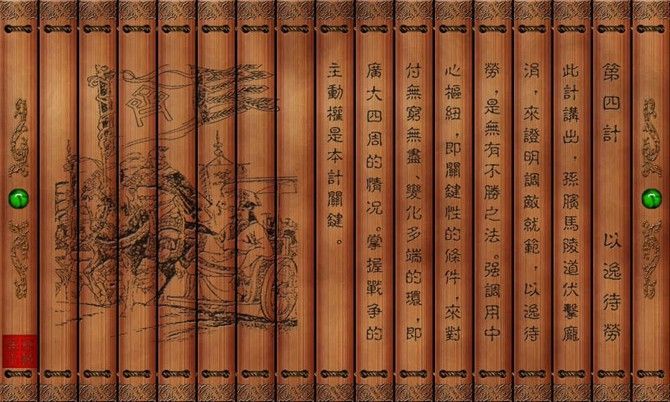 第四計 以逸待勞
此計講出,孫臏馬陵道伏擊龐
涓,來證明調敵就範,以逸待
勞,是無有不勝之法。强調用中
心樞紐,即關鍵性的條件,來對
付無窮無盡、變化多端的環,即
廣大四周的情况。掌握戰争的
主動權是本計關鍵。